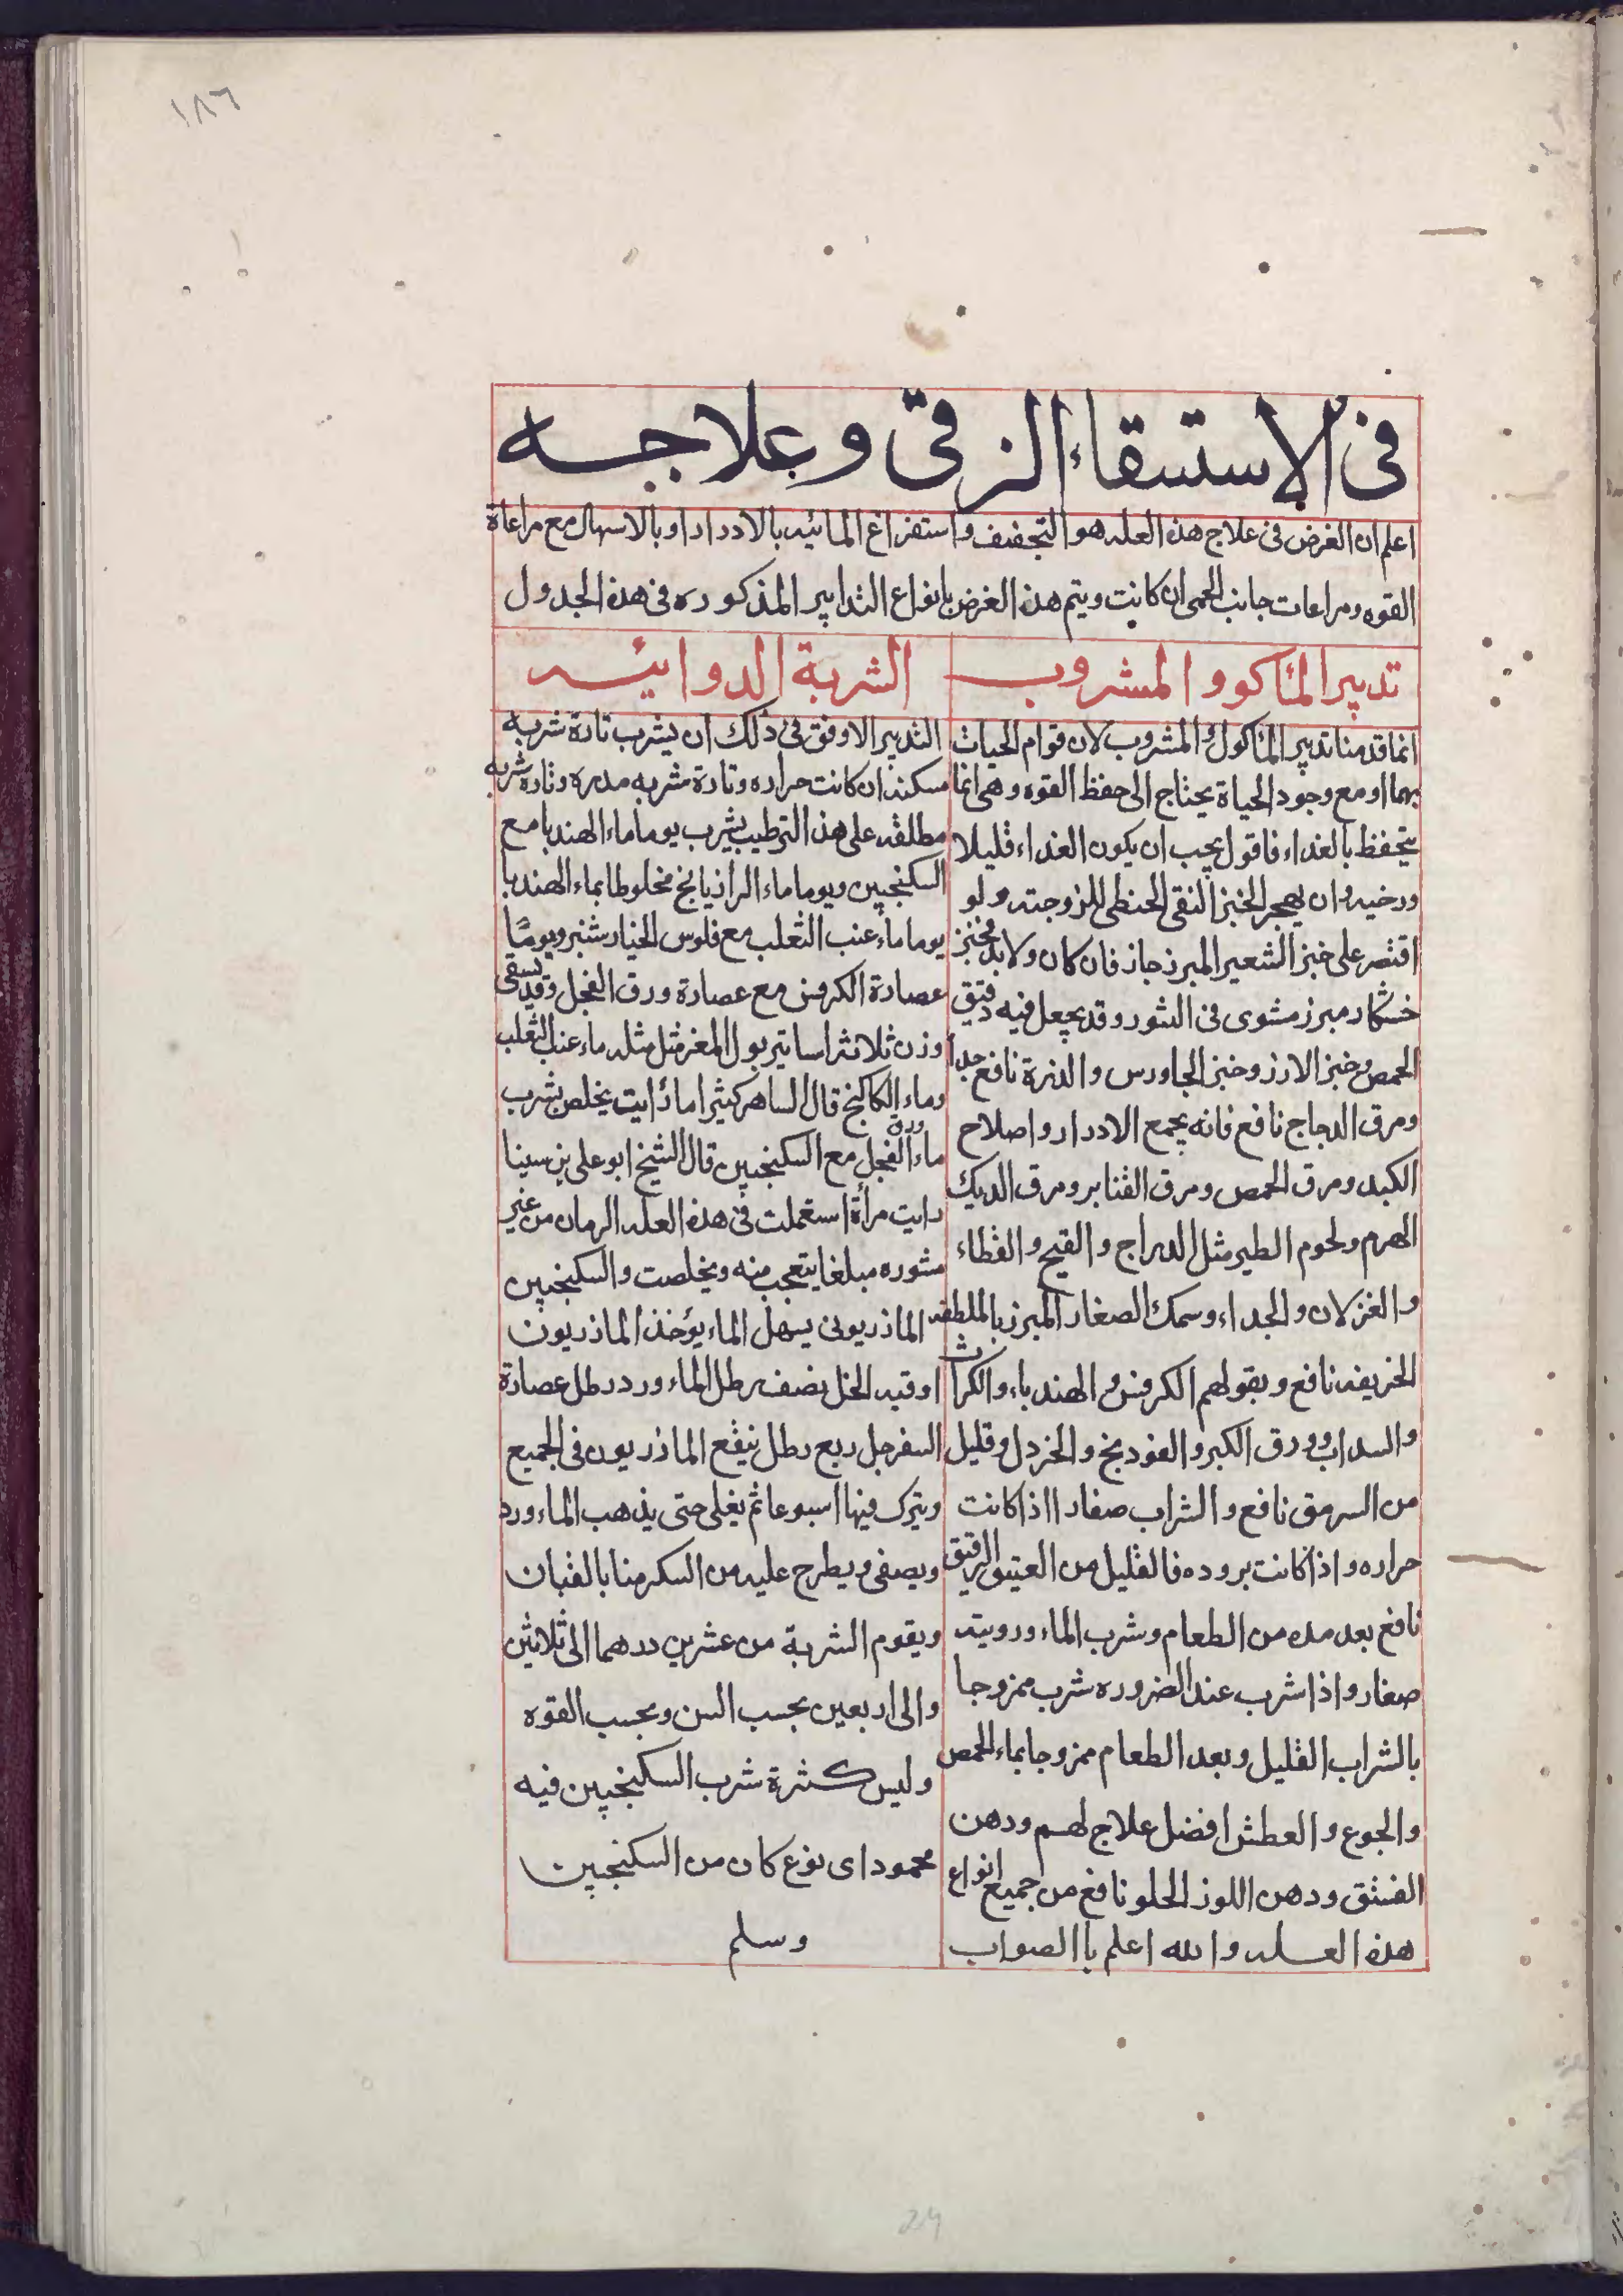 ١٨٦
فى الاستسقاء الزقى وعلاجه
اعلم ان الغرض فى علاج هذه العله هو التجفيف واستفراغ المائيه بالادرار او بالاسهال مع مراعاة
القوه ومراعات جانب الحمى ان كانت ويتم هذه الغرض بانواع التدابير المذكوره فى هذه الجدول
تدبير المئاكوو المشروب
انما قدمنا تدبير المئاكول والمشروب لان قوام الحيات
بهما او مع وجود الحياة يحتاج الى حفظ القوه وهى انما
يتحفظ بالغداء فاقول يجب ان يكون الغداء قليلا
ورخيه وان يهجر الخبز النقى الحنطى للزوجته ولو
اقتصر على خبز الشعير المبرز جاز فان كان ولابد فخبز
خشكار مبرز مشوى فى التنور وقد يجعل فيه دقيق
الحمص وخبز الارز وخبز الجاورس والذرة نافع جدا
ومرق الدجاج نافع فانه يجمع الادرار واصلاح
الكبد ومرق الحمص ومرق القنابر ومرق الديك
الهرم ولحوم الطير مثل الدراج والقبج والقطاء
والغزلان والجداء وسمك الصغار المبرز بالملطفه
الحريفه نافع وبقولهم الكرفس والهندباء والكراث
والسداب وورق الكبر والفودنج والخردل وقليل
من السرمق نافع والشراب صغار ااذا كانت
حراره واذا كانت بروده فالقليل من العتيق الرقيق
نافع بعد مده من الطعام وشرب الماء ورويته
صغار واذا شرب عند الضروره شرب ممزوجا
بالشراب القليل وبعد الطعام ممزوجا بماء الحمص
والجوع والعطش افضل علاج لهم ودهن
الفستق ودهن اللوز الحلو نافع من جميع انواع
هذه العله والله اعلم باالصواب
الشربة الدوائيه
التدبير الاوفق فى ذلك ان يشرب تارة شربه
مسكنه ان كانت حراره وتارة شربه مدره وتارة شربه
مطلقه على هذا الترطيب يشرب يوما ماء الهندبا مع
السكنجبين ويوما ماء الرازيانج مخلوطا بماء الهندبا
يوما ماء عنب الثعلب مع فلوس الخيار شنبر ويومًا
عصارة الكرفس مع عصارة ورق الفجل وقد يسقى
وزن ثلاثة اساتير بول المعز مثل مثله ماء عنب الثعلب
وماء الكاكنج قال الساهر كثيرا ما رايت يخلص بشرب
ماء ورق الفجل مع السكنجبين قال الشيخ ابو على بن سينا
رايت مرأة استعملت فى هذه العله الرمان من غير
مشوره مبلغا يتعجب منه وتخلصت والسكنجبين
الماذريونى يسهل الماء يؤخذ الماذريون
اوقيه الخل نصف رطل الماء ورد رطل عصارة
السفرجل ربع رطل ينقع الماذريون فى الجميع
ويترك فيها اسبوعا ثم يغلى حتى يذهب الماء ورد
ويصفى ويطرح عليه من السكر منا بالقبان
ويقوم الشربة من عشرين درهما الى ثلاثين
والى اربعين بحسب السن وبحسب القوه
وليس كثرة شرب السكنجبين فيه
محمود اى نوع كان من السكنجبين
وسلم
24